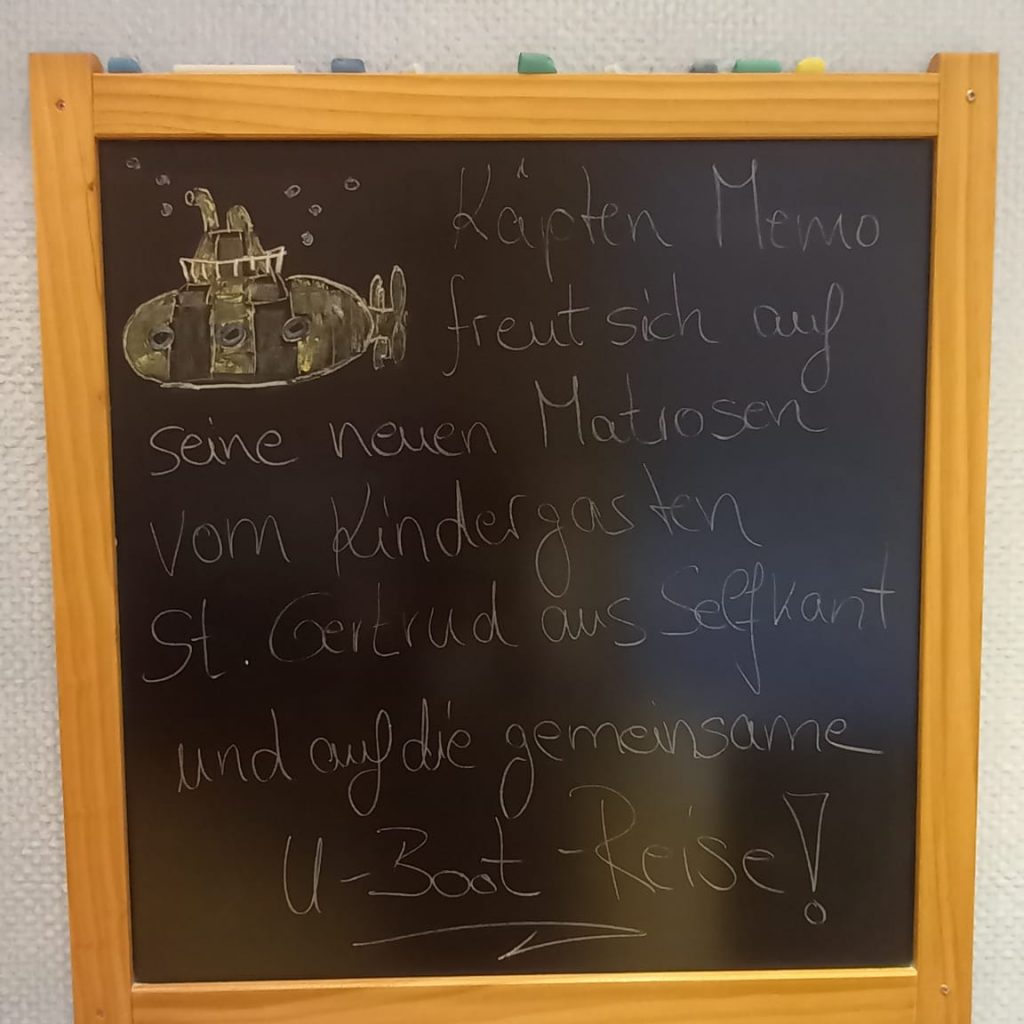 Käpten Memo
freut sich auf
seine neuen Matrosen
vom Kindergarten
St. Gertrud aus Selfkant
und auf die gemeinsame
U-Boot-Reise!